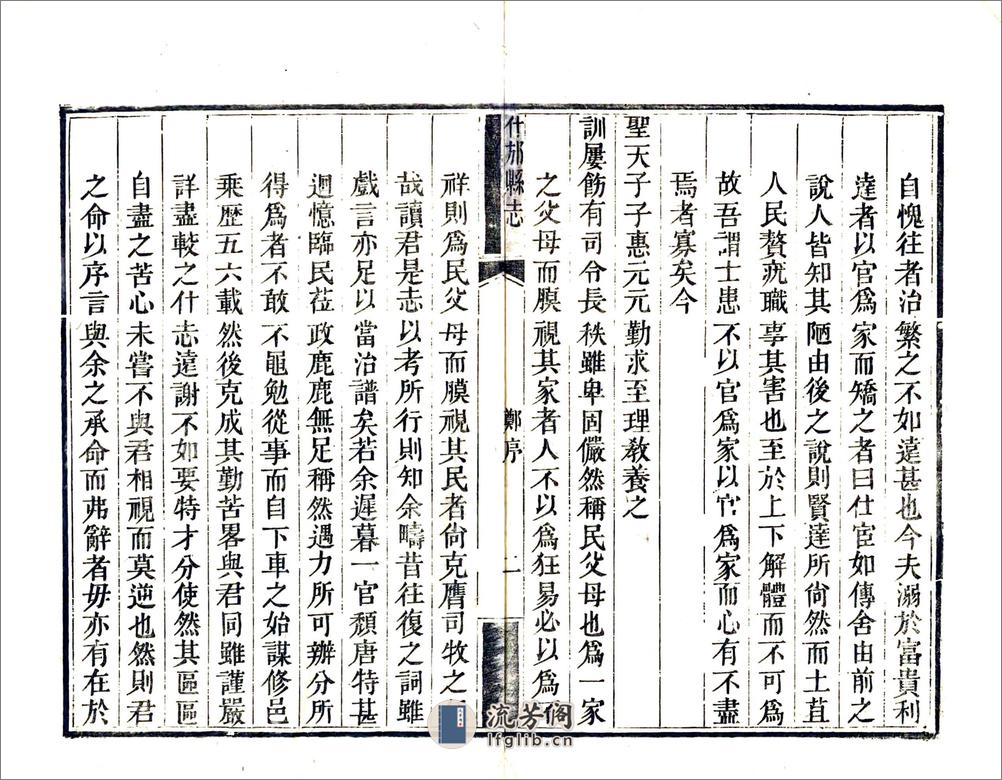 自愧往者治繁之不如遠甚也今夫溺於富貴利
達者以官爲家而矯之者曰仕宦如傳舍由前之
說人皆知其陋由後之說則賢達所尙然而土苴
人民贅疣職事其害也至於上下解體而不可爲
故吾謂士患不以官爲家以官爲家而心有不盡
焉者寡矣今
聖天子子惠元元勤求至理敎養之
訓屢飭有司令長秩雖卑固儼然稱民父母也爲一家
之父母而膜視其家者人不以爲狂易必以爲
什邡縣志
鄭序
二
祥則爲民父母而膜視其民者尙克膺司牧之
哉讀君是志以考所行則知余疇昔往復之詞雖
戲言亦足以當治譜矣若余遲暮一官頹唐特甚
迴憶臨民莅政鹿鹿無足稱然遇力所可辦分所
得爲者不敢不黽勉從事而自下車之始謀修邑
乘歷五六載然後克成其勤苦畧與君同雖謹嚴
詳盡較之什志遠謝不如要特才分使然其區區
自盡之苦心未嘗不與君相視而莫逆也然則君
之命以序言與余之承命而弗辭者毋亦有在於
流芳阁
lfglib.cn